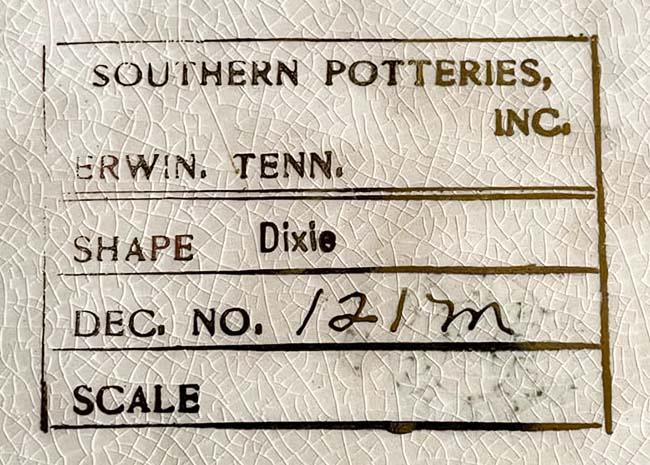 SOUTHERN POTTERIES,
INC.
ERWIN. TENN.
SHAPE Dixie
DEC. NO. 121m
SCALE